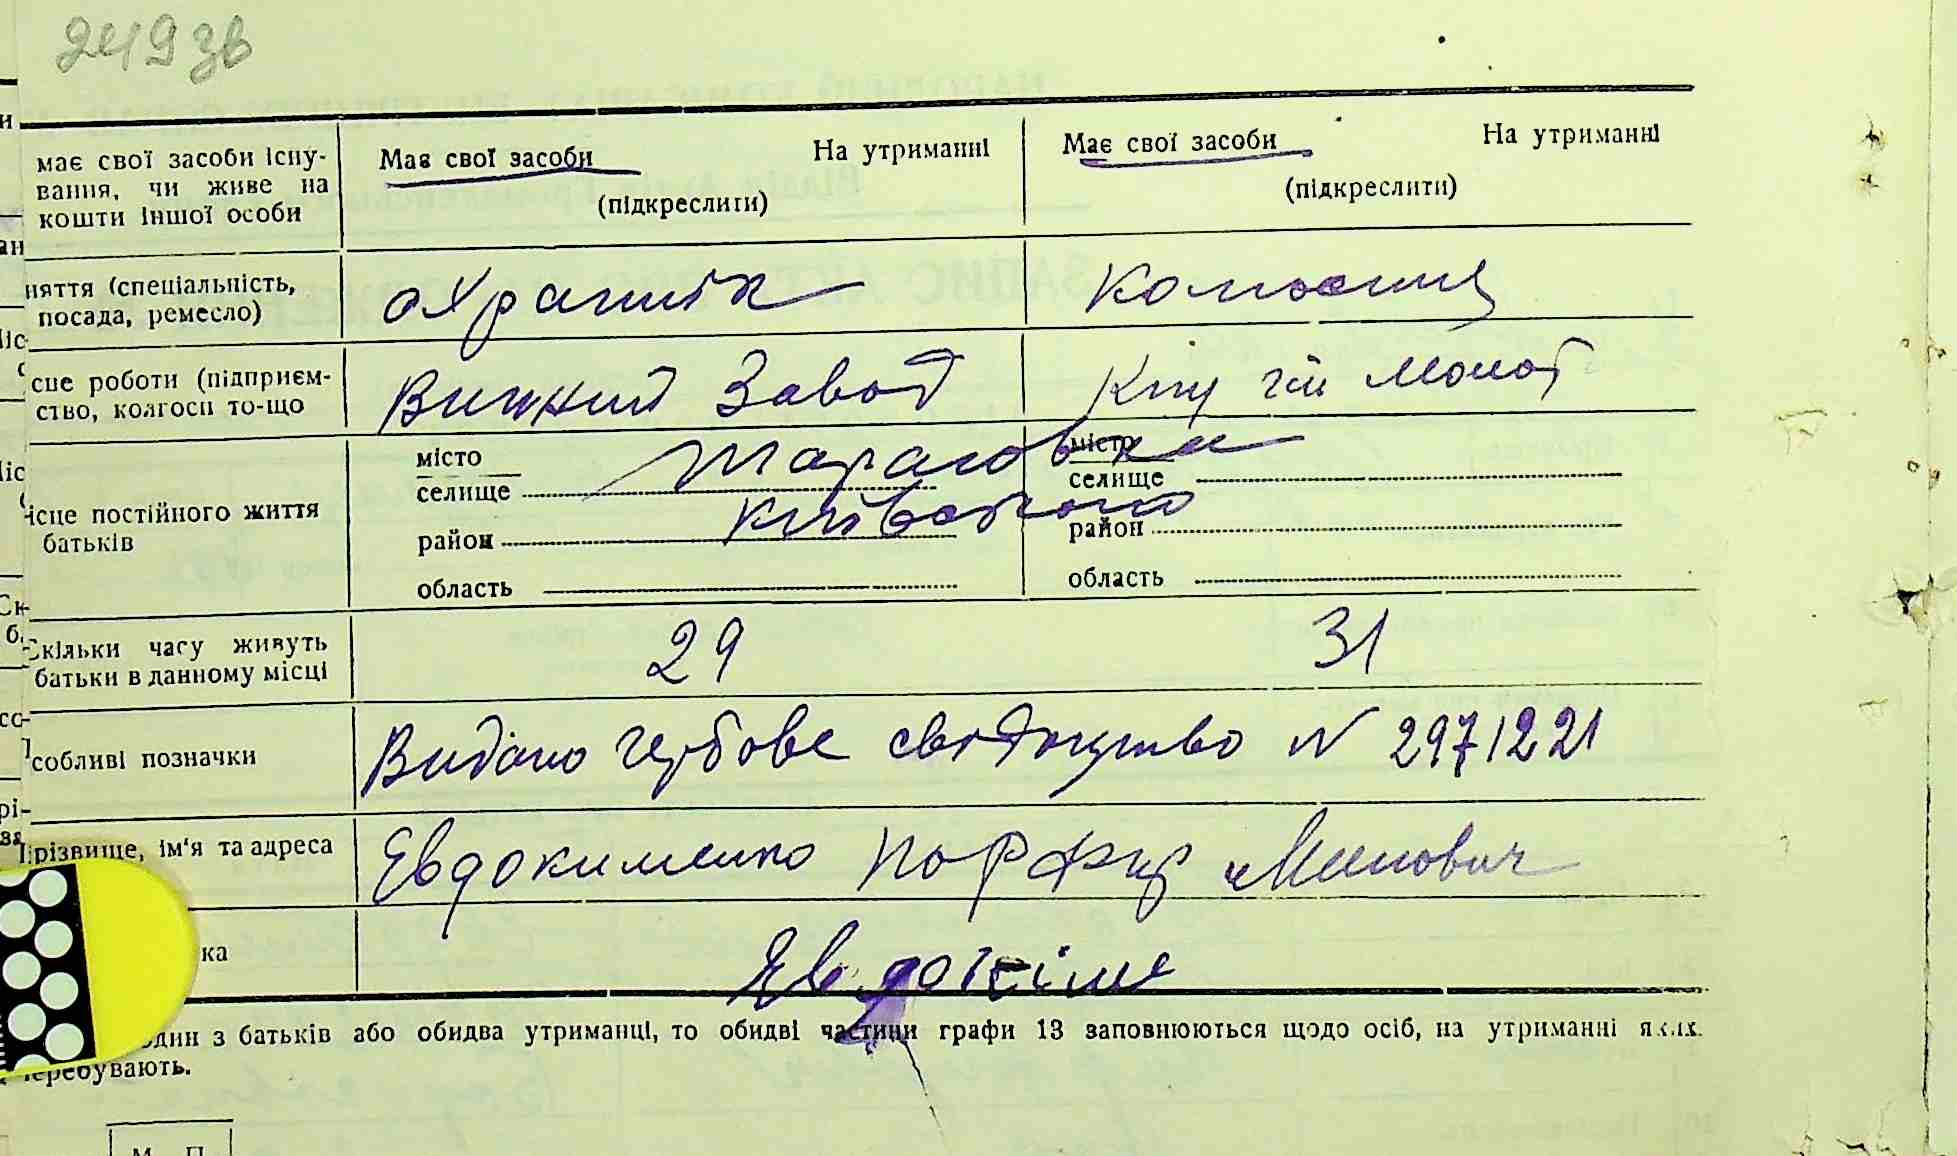 249 зв
має свої засоби існу-
вання, чи живе на
кошти іншої особи
Має свої засоби На утриманні
(підкреслити)
Має свої засоби На утриманні
(підкреслити)
няття (спеціальність,
посада, ремесло)
охранік
колгосниц
сце роботи (підприєм-
ство, колгосп то-що
Винний Завод
молот
ісце постійного життя
батьків
місто
селище
район
область
Тарасовка
місто
селище
район
область
Скільки часу живуть
батьки в данному місці
29
31
собливі позначки
Видано гербове свідоцтво N 2971221
Прізвище, ім'я та адреса
Евдокименко Порфир Минович
ка
Евдокіме
один з батьків або обидва утриманці, то обидві частини графи 13 заповнюються щодо осіб, на утриманні яких
перебувають.
М. П.